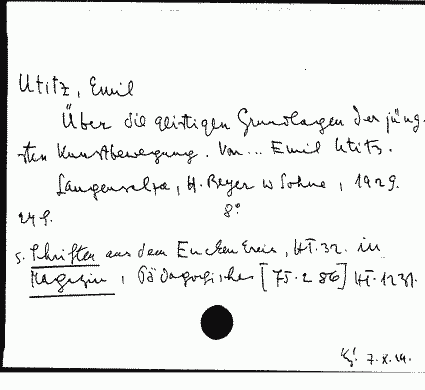 Utitz, Emil
Über die geistigen Grundlagen der jüng-
sten Kunstbewegung. Von... Emil Utitz.
Langensalza, H. Beyer u Söhne, 1929.
24 S. 8°
s. Schriften aus dem Euckenkreis, Hft. 32. in
Magazin, Pädagogisches [75. 286] Hft. 1231.
7.X.29.